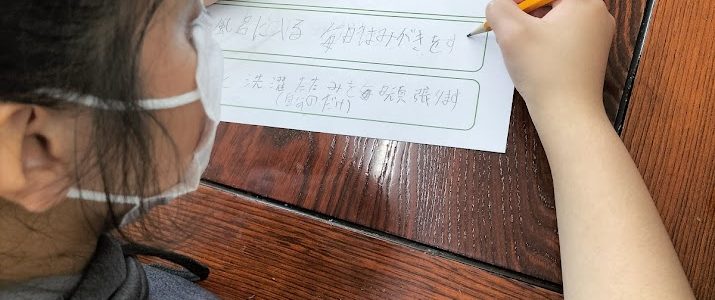 風呂に入る 毎日はみがきをす
洗濯たたみを頑張ります
(自分のだけ)